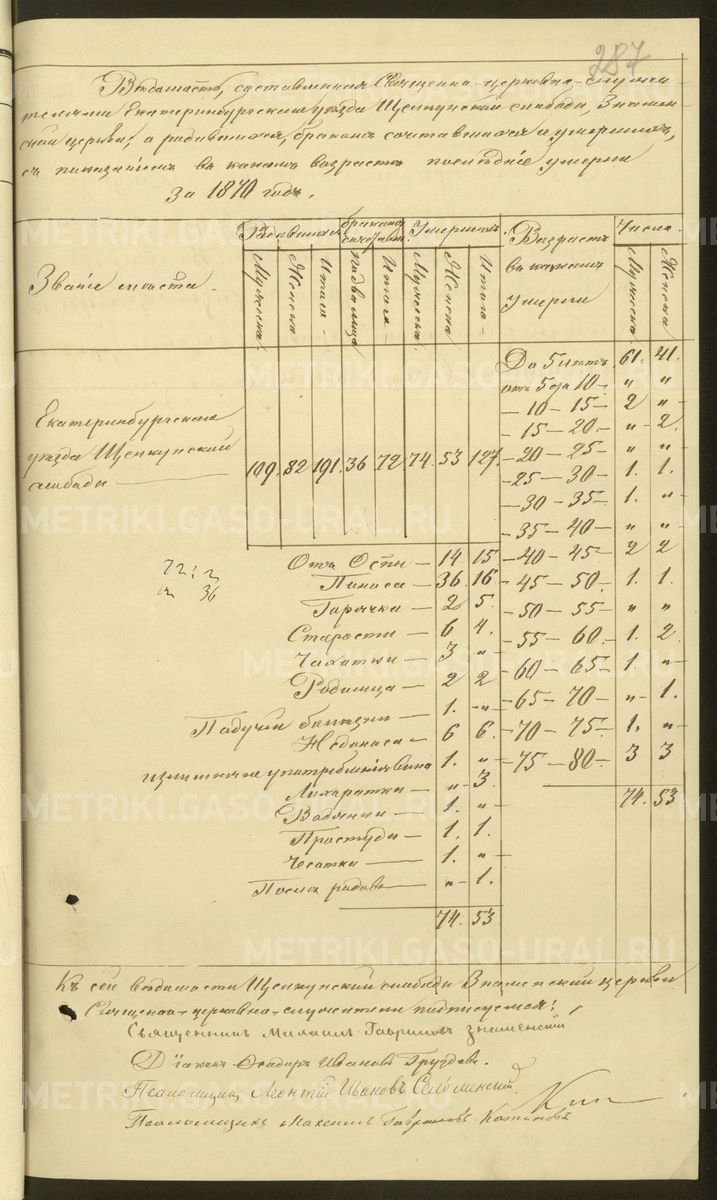 287
Вѣдомость, составленная Священно-церковно-служи
телями Екатеринбургскаго уѣзда Щелкунской слободы, Знамен
ской церкви, о родившихся, бракомъ сочетавшихся и умершихъ,
съ показаніемъ въ какомъ возрастѣ послѣдніе умерли
За 1870 годъ.
Званіе мѣста.
Родившихся
бракомъ сочетав.
Умершихъ.
Возрастъ въ какомъ умерли
Число.
Мужеска. Женска Итого Подва лица Итого Мужеска. Женска Итого Мужеска Женска
Екатеринбургскаго
уѣзда Щелкунской
слободы
109. 82 191. 36 72 74. 53 127.
До 5 лѣтъ. 61. 41.
отъ 5 до 10 — „ „
— 10 — 15 — 2 „ —
— 15 — 20 — „ — 2.
— 20 — 25 — „ „
— 25 — 30 — 1. 1.
— 30 — 35 — 1. „ —
— 35 — 40 — „ „
— 40 — 45 — 2 2
— 45 — 50 — 1. 1.
— 50 — 55 — „ „
— 55 — 60 — 1. 2.
— 60 — 65 — 1. „ —
— 65 — 70 — „ — 1.
— 70 — 75 — 1. „ —
— 75 — 80 — 3 3
74. 53
Отъ Оспы — 14 15
Поноса — 36. 16
Горячки — 2 5.
Старости — 6 4.
Чахотки — 3 „ —
Родимца — 2 2
Падучей болѣзни — 1. „ —
Недоноса — 6 6.
излишнее употребленія вина 1. „ —
Лихоратки — „ 3.
Водянки — 1. „ —
Простуды — 1. 1.
Чесотки — 1. „ —
Послѣ родовъ — „ 1.
74. 53
72:2
36
Къ сей вѣдомости Щелкунской слободы Знаменской церкви
Священно-церковно-служители подписуемся:
Священникъ Михаилъ Гавриловъ Знаменскій
Діаконъ Ѳеодоръ Ивановъ Груздевъ.
Псаломщикъ Леонтій Ивановъ Сельменскій.
Псаломщикъ Максимъ Гавриловъ
METRIKI.GASO-URAL.RU